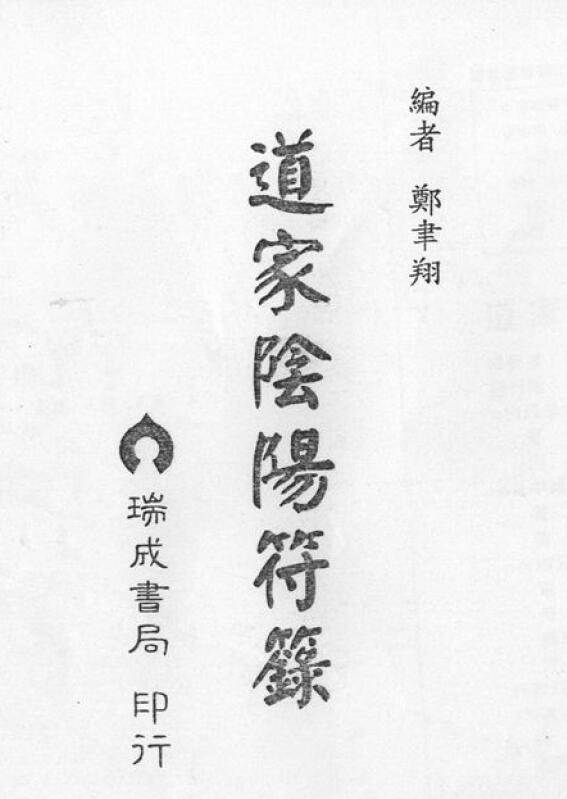 編者 鄭聿翔
道家陰陽符籙
瑞成書局 印行